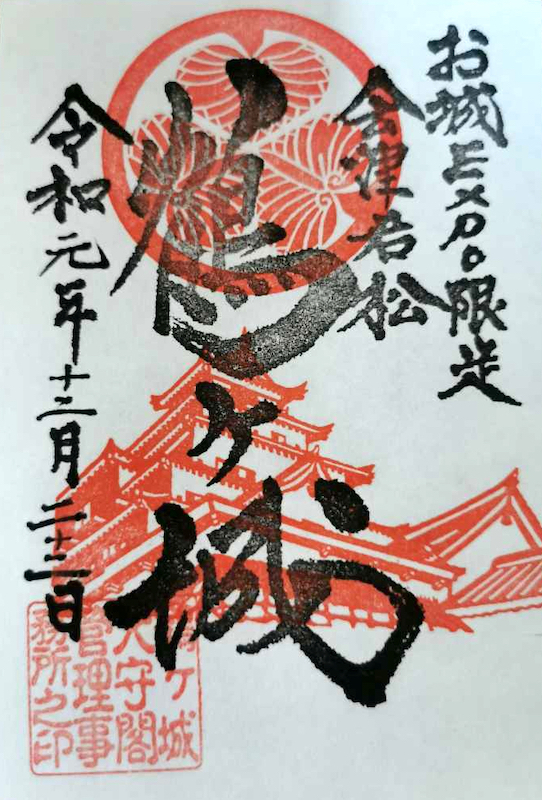 お城EXPO限定
会津若松
鶴ヶ城
令和元年十二月二十二日
鶴ヶ城
天守閣
管理事
務所之印